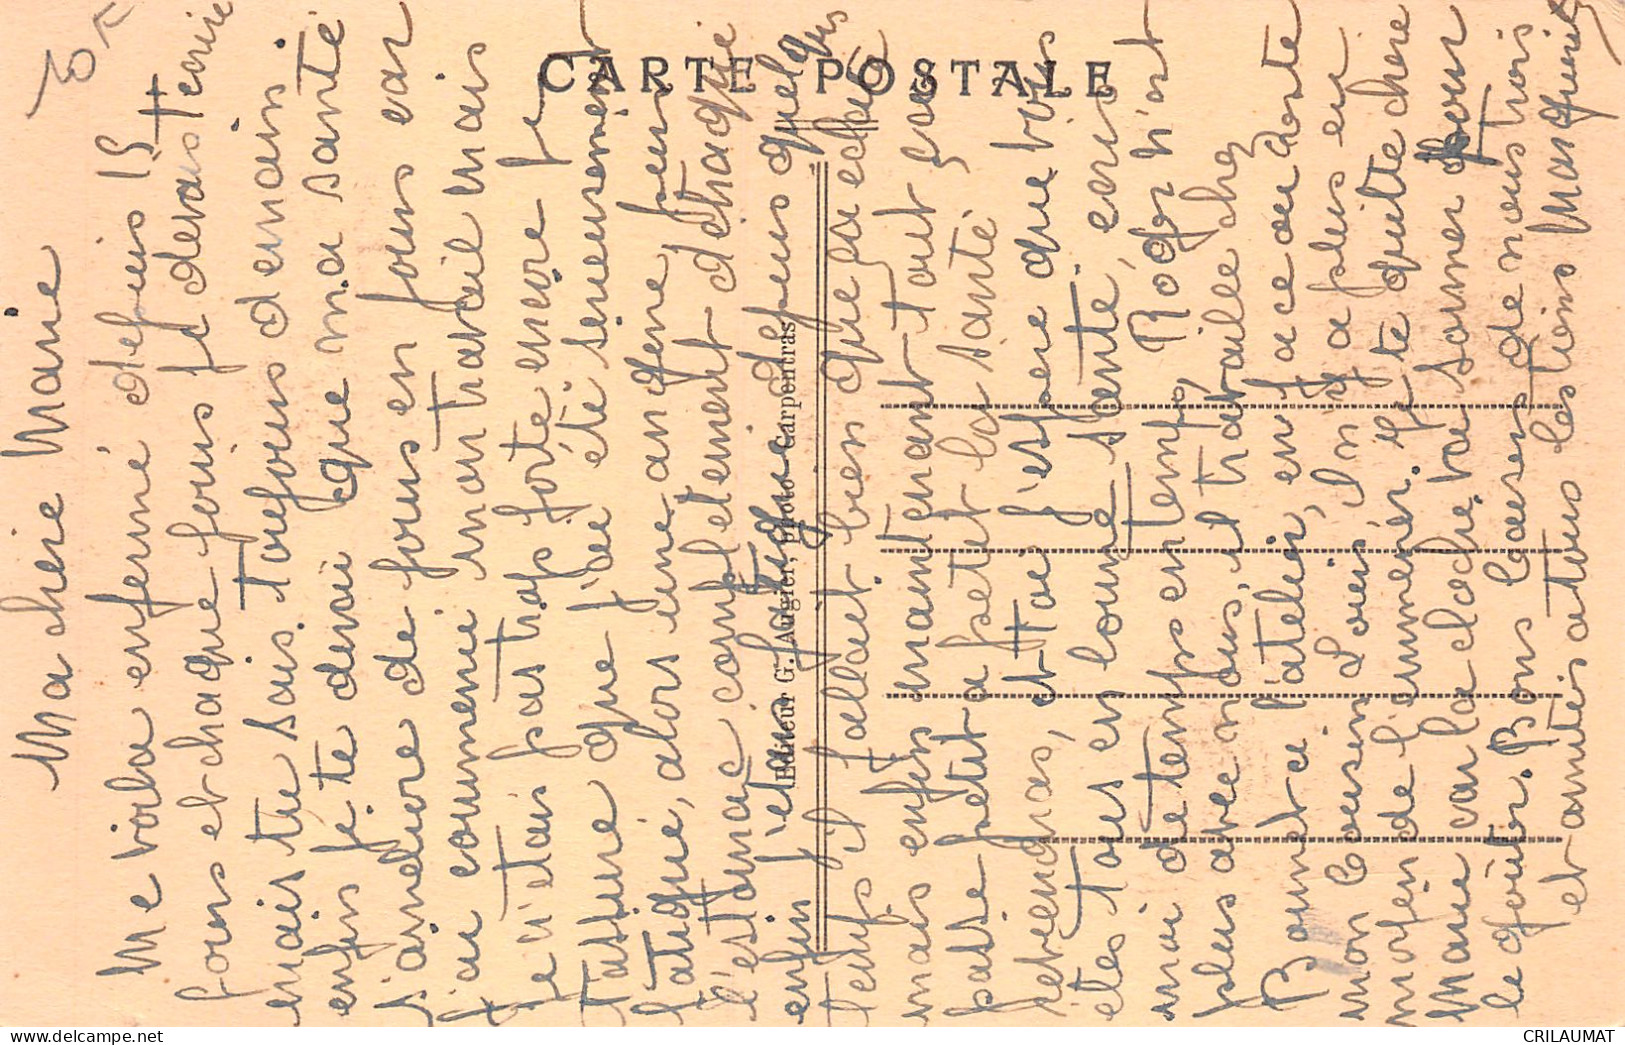 CARTE POSTALE
Editeur G. Augier, photo Carpentras
Ma chère Marie
Me voila enfermé depuis 15
jours et chaque jours je devais t'ecrire
mais tu sais toujours demain
enfin je te dirai que ma santé
s'améliore de jours en jours car
j'ai commencé mon travail mais
je n'étais pas trop forte encore je
t'assure que j'ai été sérieusement
fatigué, alors une angene, puis
l'estomac completement détraqué
enfin j'etais fatigué depuis quelques
temps il fallait bien que ça éclate
mais enfin maintenant tout ça
passe petit a petit la santé
reviendras, et toi j'espere que vous
étes tous en bonne santé, ecris
moi de temps en temps, Roger n'est
plus avec nous, il travaille chez
Bonnet a l'atelier, en face au
mon Cousin Louis, Il n'y a plus
moyen de l'enmener. Je te quitte chere
Marie car la cloche va sonner pour
le goûter. Bons baisers de nous trois
et amitiés a tous les trois Marguerite
CRILAUMAT